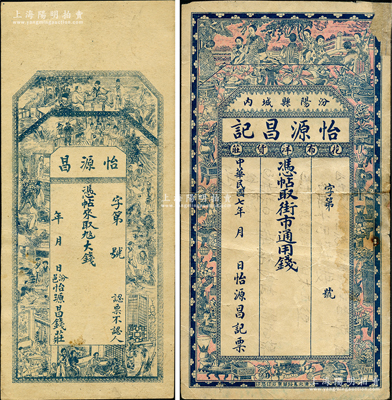 上海陽明拍賣
怡源昌
字第　號
憑帖來取九大錢
年　月　日
認票不認人
汾邑怡源昌錢莊
汾陽縣城內
怡源昌記
花布洋貨莊
字第　號
憑帖取街市通用錢
中華民國七年　月　日怡源昌記票